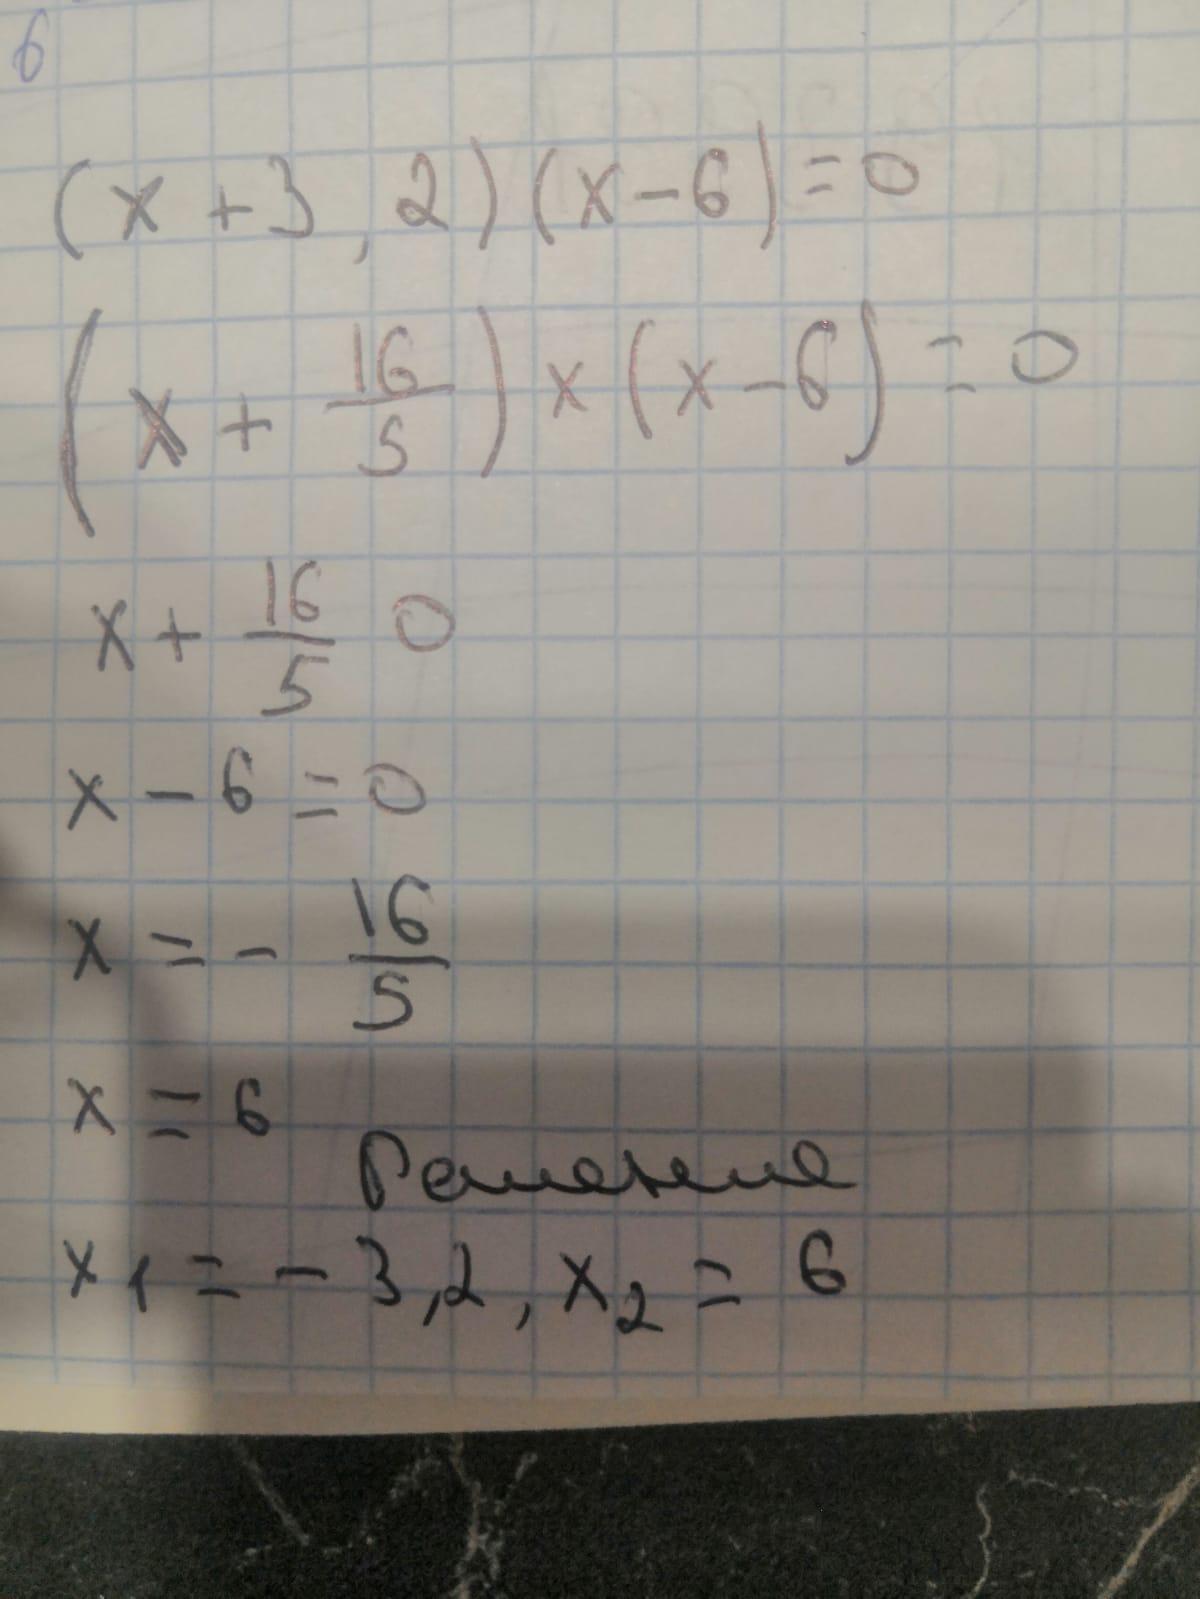 6
(x + 3,2)(x - 6) = 0
(x + 16/5) x (x - 6) = 0
x + 16/5 0
x - 6 = 0
x = - 16/5
x = 6
Решение
x₁ = - 3,2, x₂ = 6